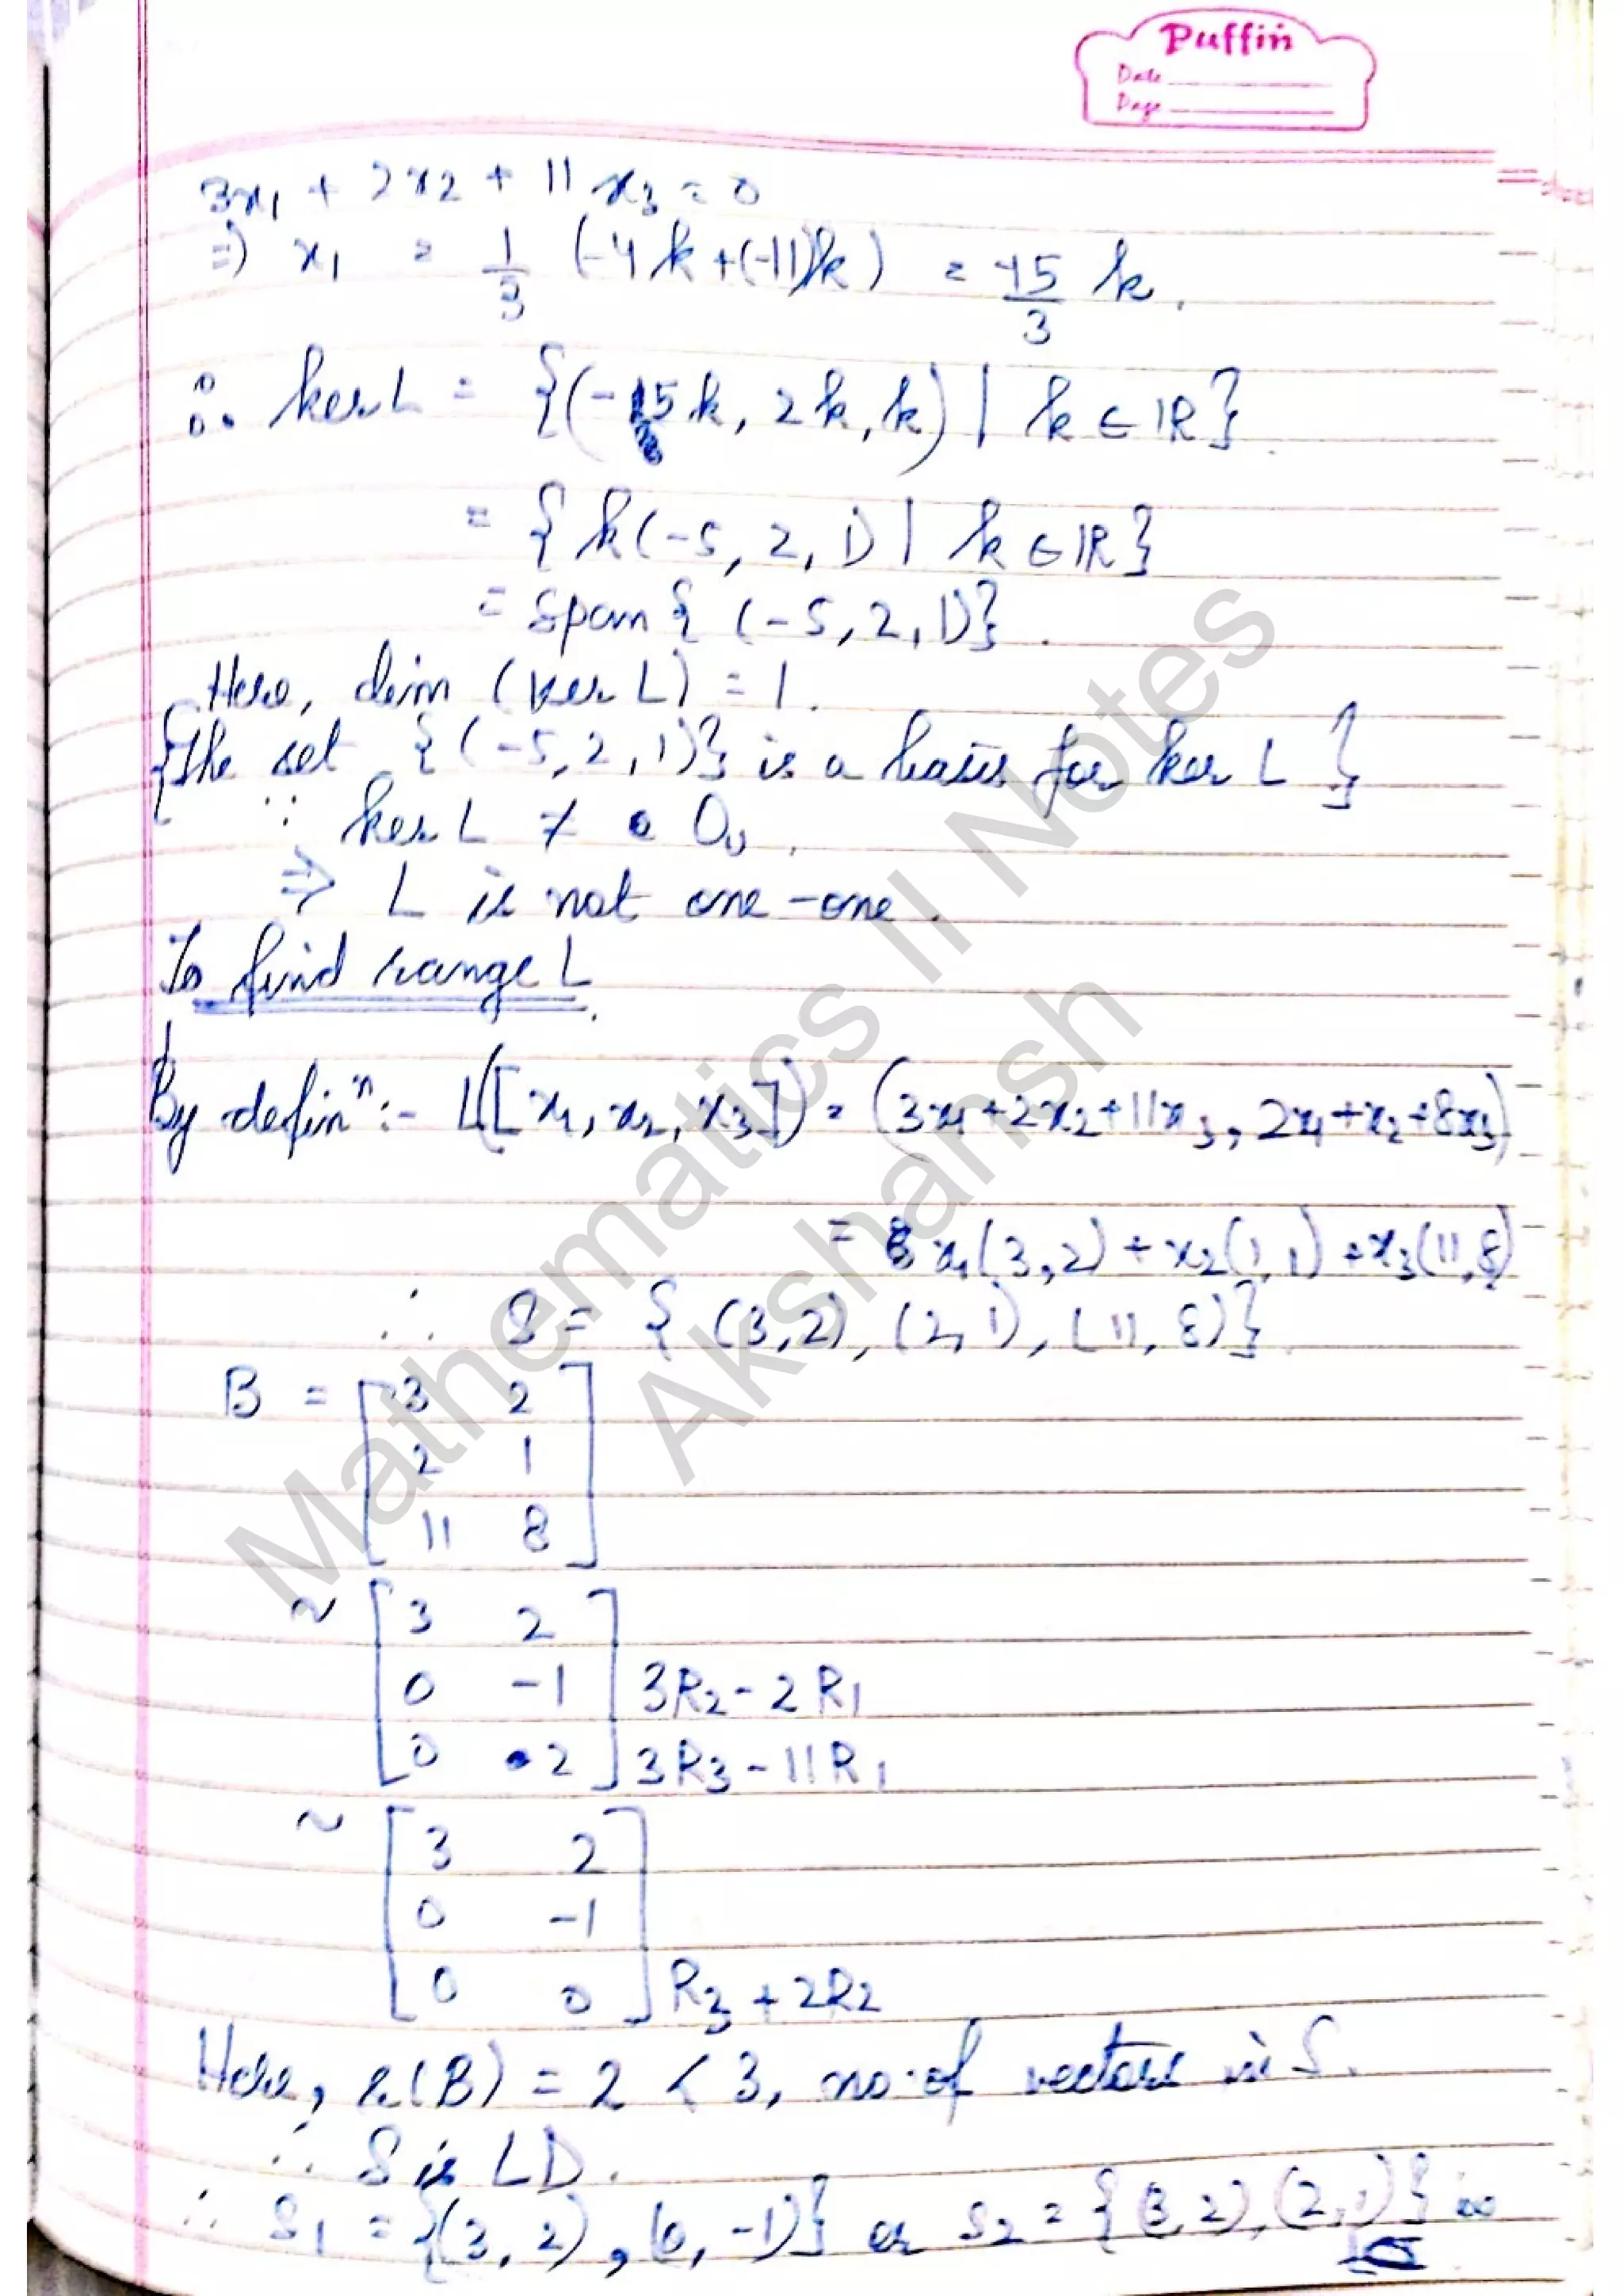 Puffin
Date
Page
3x₁ + 2x₂ + 11x₃ = 0
⇒) x₁ = 1/3 (-4k+(-11)k) = -15/3 k.
∴ ker L = {(-15k, 2k, k) | k ∈ IR}
= {k(-5, 2, 1) | k ∈ IR}
= span{ (-5, 2, 1)}.
Here, dim (ker L) = 1.
{The set {(-5, 2, 1)} is a basis for ker L }
∵ ker L ≠ 0ᵥ.
⇒ L is not one-one.
To find range L.
By definⁿ:- L([x₁, x₂, x₃]) = (3x₁+2x₂+11x₃, 2x₁+x₂+8x₃)
= x₁(3,2) + x₂(1,1) + x₃(11,8)
∴ S = { (3,2), (2,1), (11, 8)}.
B = [3 2
2 1
11 8]
~ [3 2
0 -1] 3R₂ - 2R₁
0 2] 3R₃ - 11R₁
~ [3 2
0 -1
0 0] R₃ + 2R₂
Here, r(B) = 2 < 3, no. of vectors in S.
∴ S is LD.
∴ S₁ = {(3, 2), (0, -1)} or S₂ = {(3,2), (2,1)} is
Mathematics II Notes
Akshansh